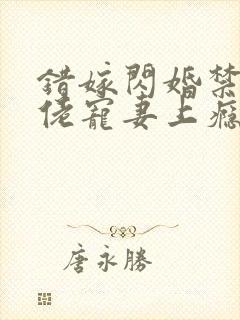 錯嫁閃婚禁
佬寵妻上癮
唐永勝